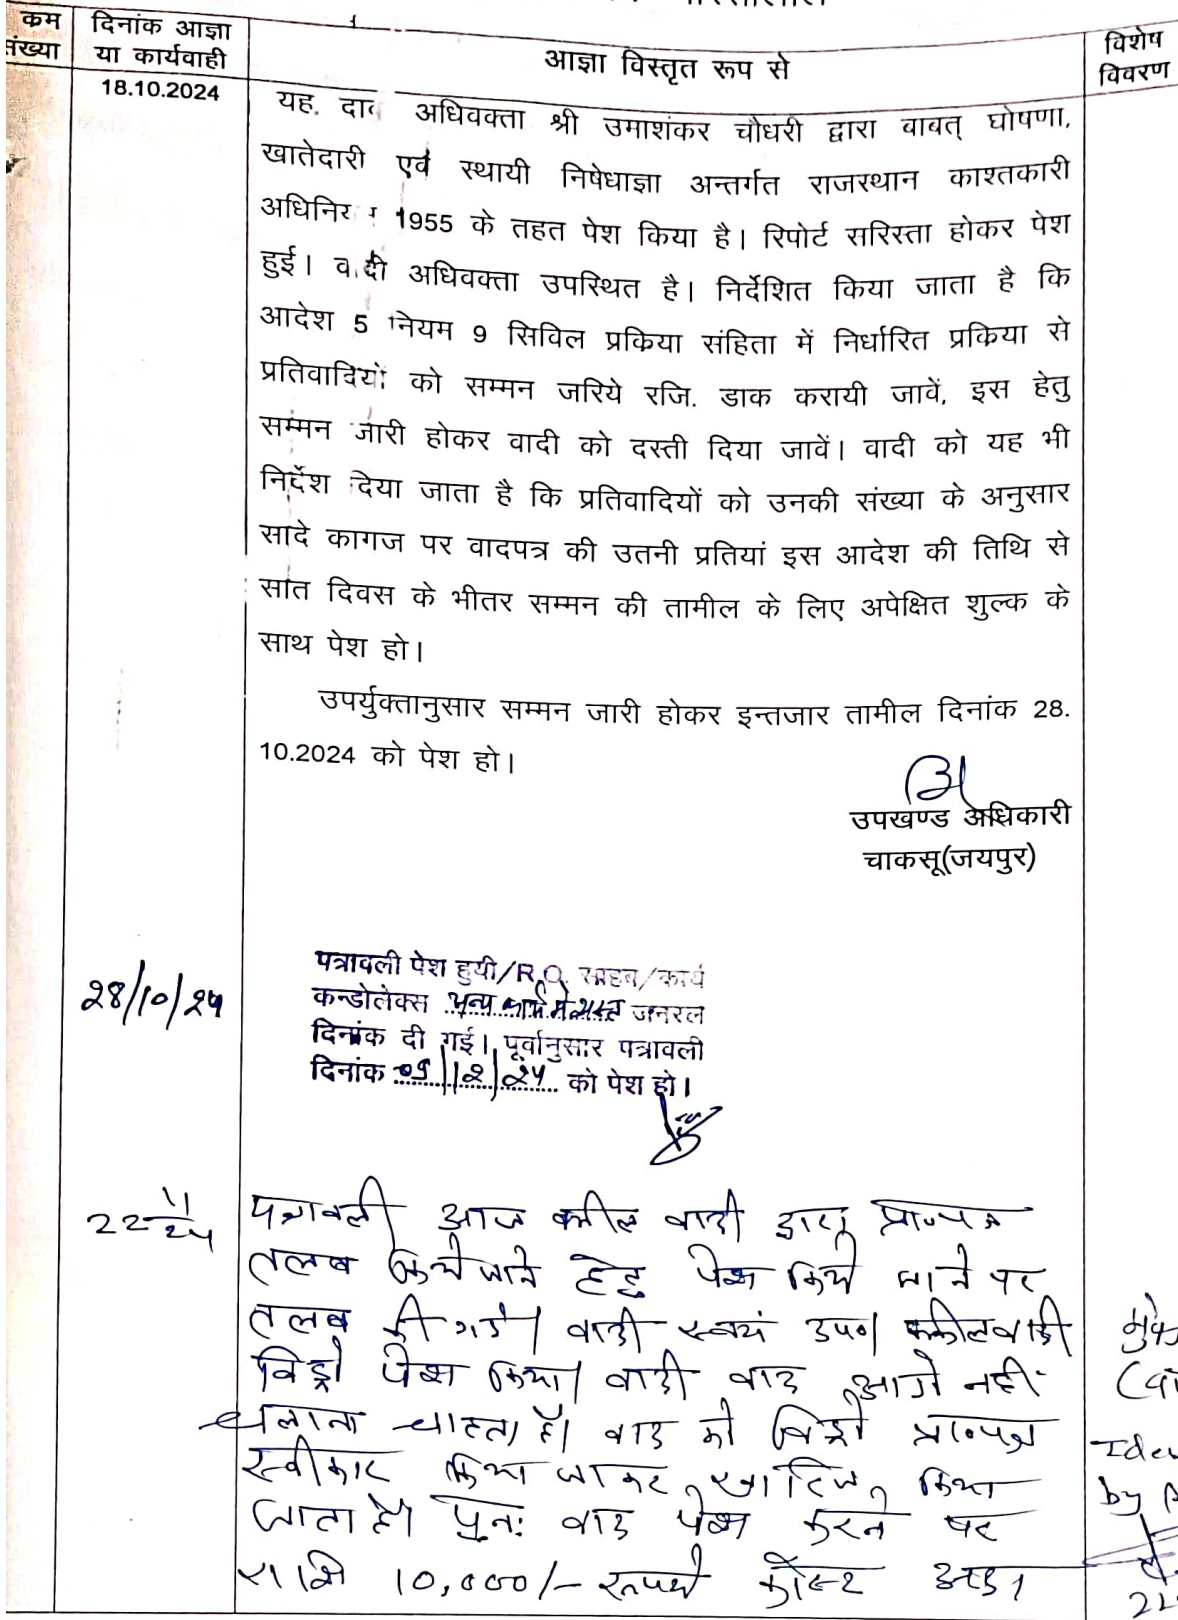 कम
संख्या
दिनांक आज्ञा
या कार्यवाही
आज्ञा विस्तृत रूप से
विशेष
विवरण
18.10.2024
यह. दाव अधिवक्ता श्री उमाशंकर चौधरी द्वारा वाबत् घोषणा,
खातेदारी एवं स्थायी निषेधाज्ञा अन्तर्गत राजस्थान काश्तकारी
1955 के तहत पेश किया है। रिपोर्ट सरिस्ता होकर पेश
हुई। वादी अधिवक्ता उपस्थित है। निर्देशित किया जाता है कि
आदेश 5 नियम 9 सिविल प्रकिया संहिता में निर्धारित प्रकिया से
प्रतिवादियों को सम्मन जरिये रजि. डाक करायी जावें, इस हेतु
सम्मन जारी होकर वादी को दस्ती दिया जावें। वादी को यह भी
निर्देश दिया जाता है कि प्रतिवादियों को उनकी संख्या के अनुसार
सादे कागज पर वादपत्र की उतनी प्रतियां इस आदेश की तिथि से
सात दिवस के भीतर सम्मन की तामील के लिए अपेक्षित शुल्क के
साथ पेश हो।
उपर्युक्तानुसार सम्मन जारी होकर इन्तजार तामील दिनांक 28.
10.2024 को पेश हो।
उपखण्ड अधिकारी
चाकसू(जयपुर)
28/10/24
पत्रावली पेश हुयी/R.O. साहब/कार्य
कन्डोलेक्स अन्य कार्य में व्यस्त जनरल
दिनांक दी गई। पूर्वानुसार पत्रावली
दिनांक 09/12/24 को पेश हो।
22-11/24
पत्रावली आज वकील वादी द्वारा प्रा०पत्र
तलब किये जाने हेतु पेश किये जाने पर
तलब की गई। वादी स्वयं उप०। वकील वादी
विड्रो पेश किया। वादी वाद आगे नहीं
चलाना चाहता है। वाद को विड्रो प्रा०पत्र
स्वीकार किया जाकर खारिज किया
जाता है। पुनः वाद पेश करने पर
राशि 10,000/- रूपये कोस्ट अदा
by